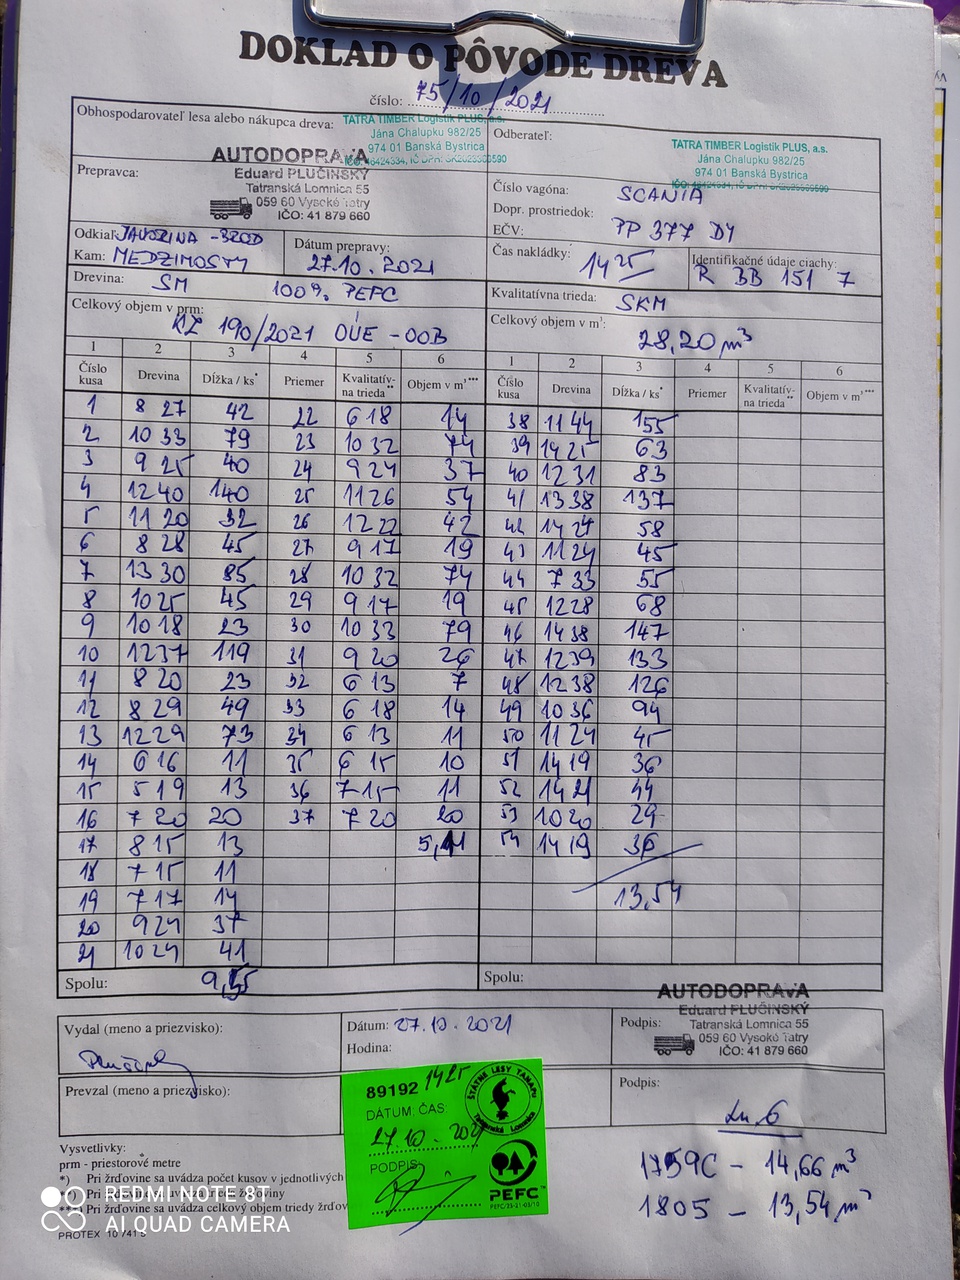 DOKLAD O PÔVODE DREVA
číslo: 75/10/2021
Obhospodarovateľ lesa alebo nákupca dreva:
TATRA TIMBER Logistik PLUS, a.s.
Jána Chalupku 982/25
974 01 Banská Bystrica
Odberateľ:
TATRA TIMBER Logistik PLUS, a.s.
Jána Chalupku 982/25
974 01 Banská Bystrica
Prepravca:
AUTODOPRAVA
Eduard PLUČINSKÝ
Tatranská Lomnica 55
059 60 Vysoké Tatry
IČO: 41 879 660
Číslo vagóna:
Dopr. prostriedok: SCANIA
EČV: PP 377 DY
Odkiaľ: JAVORINA -
Kam: MEDZIMOSTY
Dátum prepravy: 27.10.2021
Čas nakládky: 14 25
Identifikačné údaje ciachy: R BB 151 7
Drevina: SM 100% PEFC
Kvalitatívna trieda: SKM
Celkový objem v prm: KZ 190/2021 OÚE - OOB
Celkový objem v m³: 28,20 m³
1 2 3 4 5 6 1 2 3 4 5 6
Číslo kusa Drevina Dĺžka / ks* Priemer Kvalitatív-na trieda** Objem v m³*** Číslo kusa Drevina Dĺžka / ks* Priemer Kvalitatív-na trieda** Objem v m³***
1 8 27 42 22 6 18 14 38 11 44 155
2 10 33 79 23 10 32 74 39 14 25 63
3 9 25 40 24 9 24 37 40 12 31 83
4 12 40 140 25 11 26 54 41 13 38 137
5 11 20 32 26 12 22 42 42 14 24 58
6 8 28 45 27 9 17 19 43 11 24 45
7 13 30 85 28 10 32 74 44 7 33 55
8 10 25 45 29 9 17 19 45 12 28 68
9 10 18 23 30 10 33 79 46 14 38 147
10 12 37 119 31 9 20 26 47 12 39 133
11 8 20 23 32 6 13 7 48 12 38 126
12 8 29 49 33 6 18 14 49 10 36 94
13 12 29 73 34 6 13 11 50 11 24 45
14 6 16 11 35 6 15 10 51 14 19 36
15 5 19 13 36 7 15 11 52 14 21 44
16 7 20 20 37 7 20 20 53 10 20 29
17 8 15 13 5,11 54 14 19 36
18 7 15 11
19 7 17 14 13,54
20 9 24 37
21 10 24 41
Spolu: 9,55 Spolu:
Vydal (meno a priezvisko):
Dátum: 27.10.2021
Hodina:
Podpis:
AUTODOPRAVA
Eduard PLUČINSKÝ
Tatranská Lomnica 55
059 60 Vysoké Tatry
IČO: 41 879 660
Prevzal (meno a priezvisko):
Podpis:
89192 14 25
DÁTUM; ČAS
27.10.2021
PODPIS
ŠTÁTNE LESY TANAPu
Tatranská Lomnica
PEFC™
1759C - 14,66 m³
1805 - 13,54 m³
Vysvetlivky:
prm - priestorové metre
*) Pri žrďovine sa uvádza počet kusov v jednotlivých
Pri žrďovine sa uvádza trieda žrďoviny
Pri žrďovine sa uvádza celkový objem triedy žrďov
PROTEX
REDMI NOTE 8T
AI QUAD CAMERA